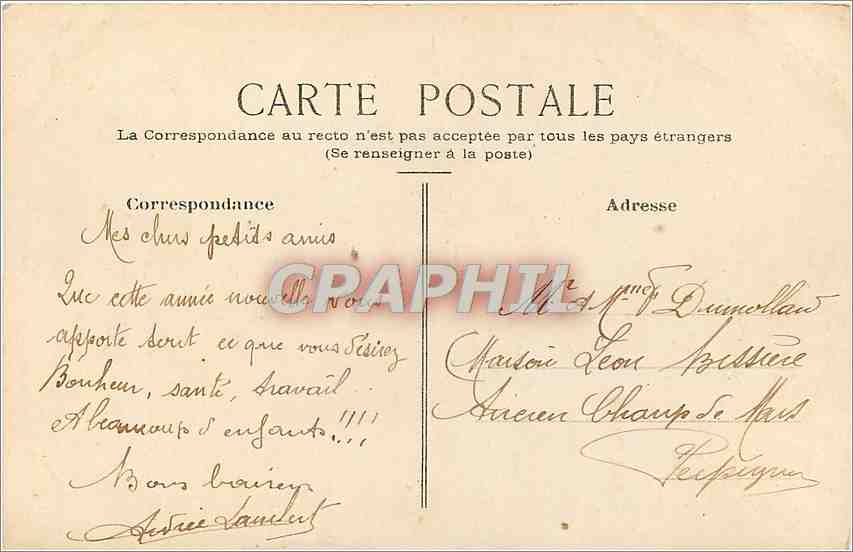 CARTE POSTALE
La Correspondance au recto n'est pas acceptée par tous les pays étrangers
(Se renseigner à la poste)
Correspondance
Mes chers petits amis
Que cette année nouvelle vous
apporte tout ce que vous désirez
Bonheur, santé, travail...
& beaucoup d'enfants!!!!
Bons baisers
Lambert
CPARAMA
Adresse
Mr & Mme Dumollard
Maison Léon Bissière
Ancien Champ de Mars
Perpignan